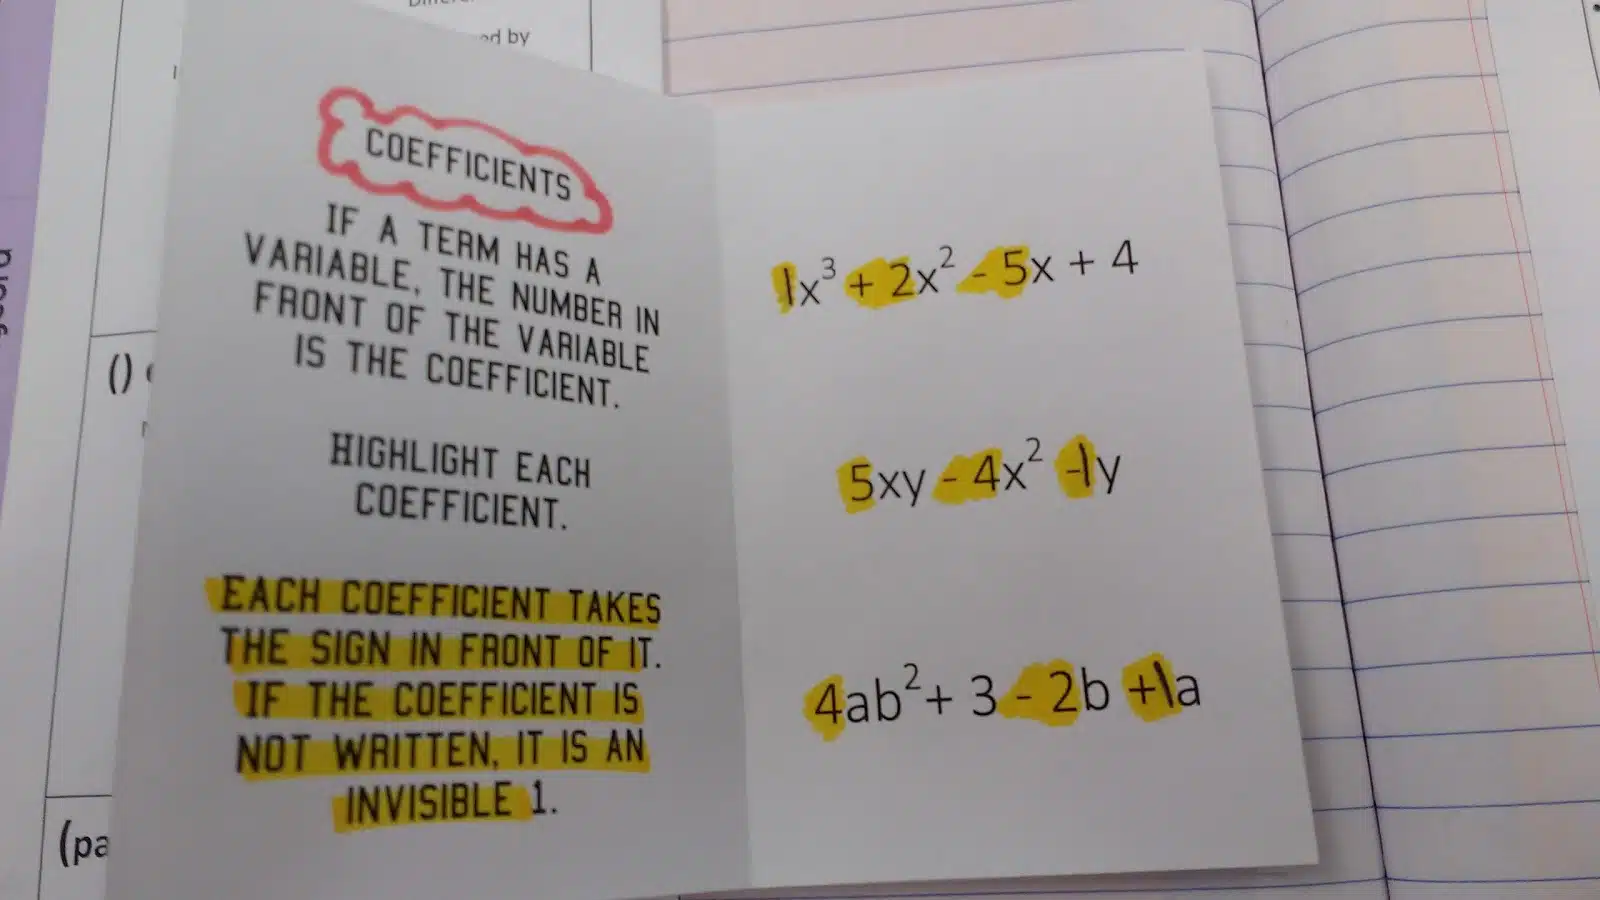 ed by
()
(pa
COEFFICIENTS
IF A TERM HAS A
VARIABLE, THE NUMBER IN
FRONT OF THE VARIABLE
IS THE COEFFICIENT.
HIGHLIGHT EACH
COEFFICIENT.
EACH COEFFICIENT TAKES
THE SIGN IN FRONT OF IT.
IF THE COEFFICIENT IS
NOT WRITTEN, IT IS AN
INVISIBLE 1.
1x³ + 2x² - 5x + 4
5xy - 4x² -1y
4ab² + 3 - 2b +1a